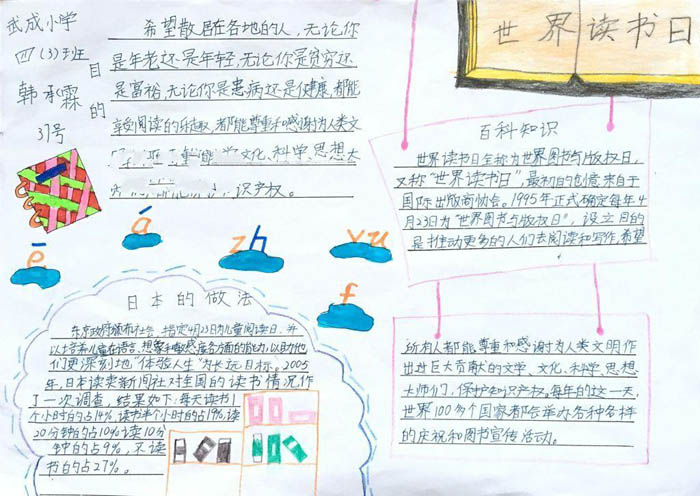 武成小学
四(3)班
韩承霖
37号
目的
希望散居在各地的人,无论你
是年老还是年轻,无论你是贫穷还
是富裕,无论你是患病还是健康,都能
享受阅读的乐趣,都能尊重和感谢为人类文
文化、科学、思想大
识产权。
世界读书日
百科知识
世界读书日全称为世界图书与版权日,
又称“世界读书日”,最初的创意来自于
国际出版商协会。1995年正式确定每年4
月23日为“世界图书与版权日”,设立目的
是推动更多的人们去阅读和写作,希望
所有人都能尊重和感谢为人类文明作
出过巨大贡献的文学、文化、科学、思想
大师们,保护知识产权。每年的这一天,
世界100多个国家都会举办各种各样
的庆祝和图书宣传活动。
ē
á
zh
yu
f
日本的做法
东京政府颁布社会,指定4月23日为儿童阅读日,并
以培养儿童在语言、想象和敏感度各方面的能力,以助他
们更深刻地“体验人生”为长远目标。2005
年,日本读卖新闻社对全国的读书情况作
了一次调查,结果如下:每天读书1
个小时的占14%,读书半个小时的占19%,读
20分钟的占10%,读10分
钟的占9%,不读
书的占27%。